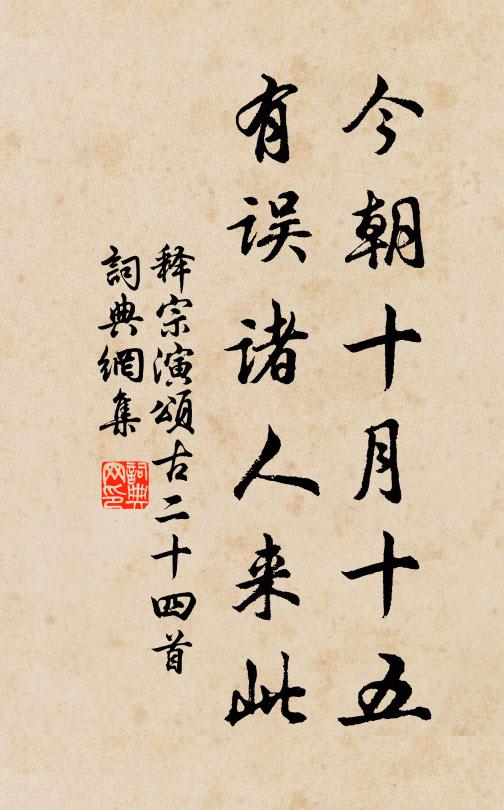 今朝十月十五
有误诸人来此
释宗演頌古二十四首
詞典網集
詞典网印